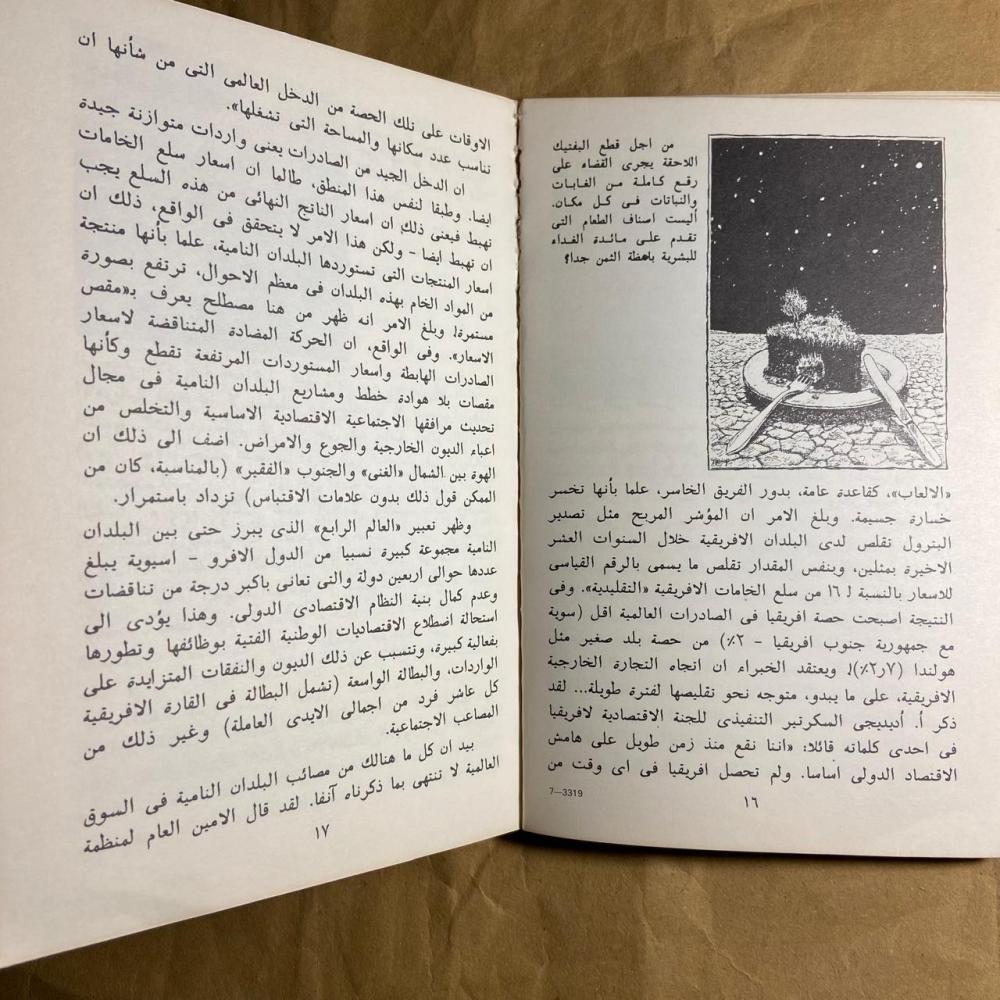 من اجل قطع البفتيك
اللاحقة يجرى القضاء على
رقع كاملة من الغابات
والنباتات فى كل مكان.
أليست اصناف الطعام التى
تقدم على مائدة الغداء
للبشرية باهظة الثمن جدا؟
«الالعاب»، كقاعدة عامة، بدور الفريق الخاسر، علما بأنها تخسر
خسارة جسيمة. وبلغ الامر ان المؤشر المربح مثل تصدير
البترول تقلص لدى البلدان الافريقية خلال السنوات العشر
الاخيرة بمثلين، وبنفس المقدار تقلص ما يسمى بالرقم القياسى
للاسعار بالنسبة لـ ١٦ من سلع الخامات الافريقية «التقليدية». وفى
النتيجة اصبحت حصة افريقيا فى الصادرات العالمية اقل (سوية
مع جمهورية جنوب افريقيا – ٢٪) من حصة بلد صغير مثل
هولندا (٢٫٧٪)! ويعتقد الخبراء ان اتجاه التجارة الخارجية
الافريقية، على ما يبدو، متوجه نحو تقليصها لفترة طويلة... لقد
ذكر أ. أديديجى السكرتير التنفيذى للجنة الاقتصادية لافريقيا
فى احدى كلماته قائلا: «اننا نقع منذ زمن طويل على هامش
الاقتصاد الدولى اساسا. ولم تحصل افريقيا فى اى وقت من
7—3319
١٦
الاوقات على تلك الحصة من الدخل العالمى التى من شأنها ان
تناسب عدد سكانها والمساحة التى تشغلها».
ان الدخل الجيد من الصادرات يعنى واردات متوازنة جيدة
ايضا. وطبقا لنفس هذا المنطق، طالما ان اسعار سلع الخامات
تهبط فيعنى ذلك ان اسعار الناتج النهائى من هذه السلع يجب
ان تهبط ايضا – ولكن هذا الامر لا يتحقق فى الواقع، ذلك ان
اسعار المنتجات التى تستوردها البلدان النامية، علما بأنها منتجة
من المواد الخام بهذه البلدان فى معظم الاحوال، ترتفع بصورة
مستمرة! وبلغ الامر انه ظهر من هنا مصطلح يعرف بـ«مقص
الاسعار». وفى الواقع، ان الحركة المضادة المتناقضة لاسعار
الصادرات الهابطة واسعار المستوردات المرتفعة تقطع وكأنها
مقصات بلا هوادة خطط ومشاريع البلدان النامية فى مجال
تحديث مرافقها الاجتماعية الاقتصادية الاساسية والتخلص من
اعباء الديون الخارجية والجوع والامراض. اضف الى ذلك ان
الهوة بين الشمال «الغنى» والجنوب «الفقير» (بالمناسبة، كان من
الممكن قول ذلك بدون علامات الاقتباس) تزداد باستمرار.
وظهر تعبير «العالم الرابع» الذى يبرز حتى بين البلدان
النامية مجموعة كبيرة نسبيا من الدول الافرو – اسيوية يبلغ
عددها حوالى اربعين دولة والتى تعانى باكبر درجة من تناقضات
وعدم كمال بنية النظام الاقتصادى الدولى. وهذا يؤدى الى
استحالة اضطلاع الاقتصاديات الوطنية الفتية بوظائفها وتطورها
بفعالية كبيرة، وتتسبب عن ذلك الديون والنفقات المتزايدة على
الواردات، والبطالة الواسعة (تشمل البطالة فى القارة الافريقية
كل عاشر فرد من اجمالى الايدى العاملة) وغير ذلك من
المصاعب الاجتماعية.
بيد ان كل ما هنالك من مصائب البلدان النامية فى السوق
العالمية لا تنتهى بما ذكرناه آنفا. لقد قال الامين العام لمنظمة
١٧